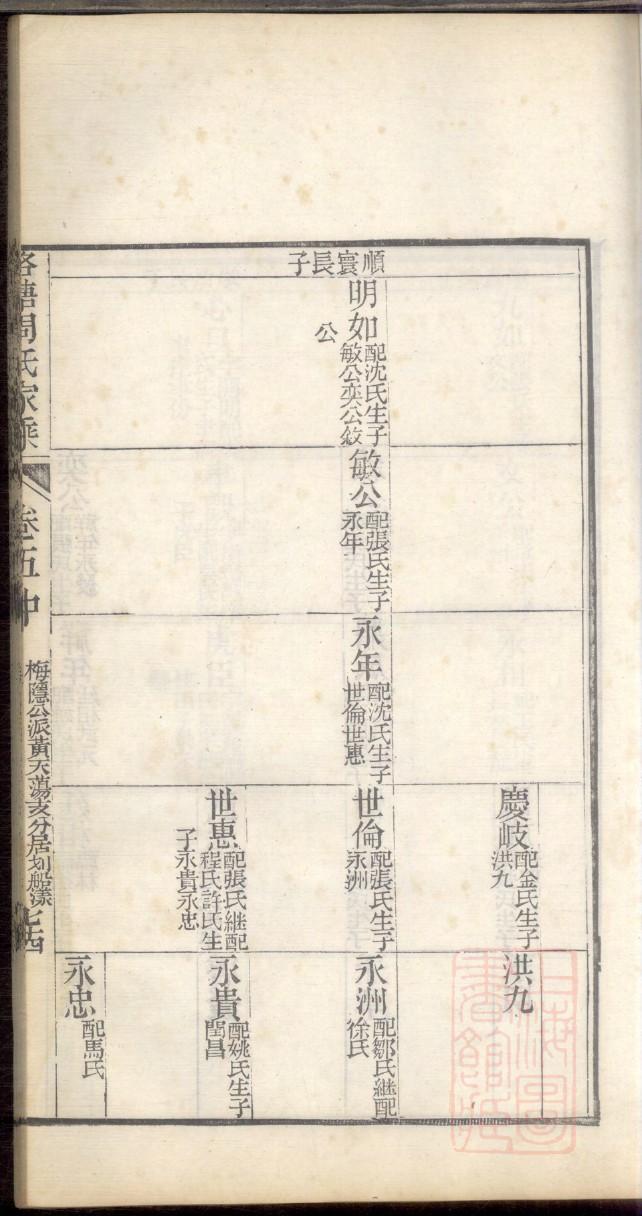 順寰長子
明如
配沈氏生子
敏公奕公敘
公
敏公
配張氏生子
永年
永年
配沈氏生子
世倫世惠
慶岐
配金氏生子
洪九
世倫
配張氏生子
永洲
世惠
配張氏繼配
程氏許氏生
子永貴永忠
洪九
永洲
配鄒氏繼配
徐氏
永貴
配姚氏生子
閏昌
永忠
配馬氏
周氏家乘
卷五中
梅隱公派黃天蕩支分居划船漾
七四